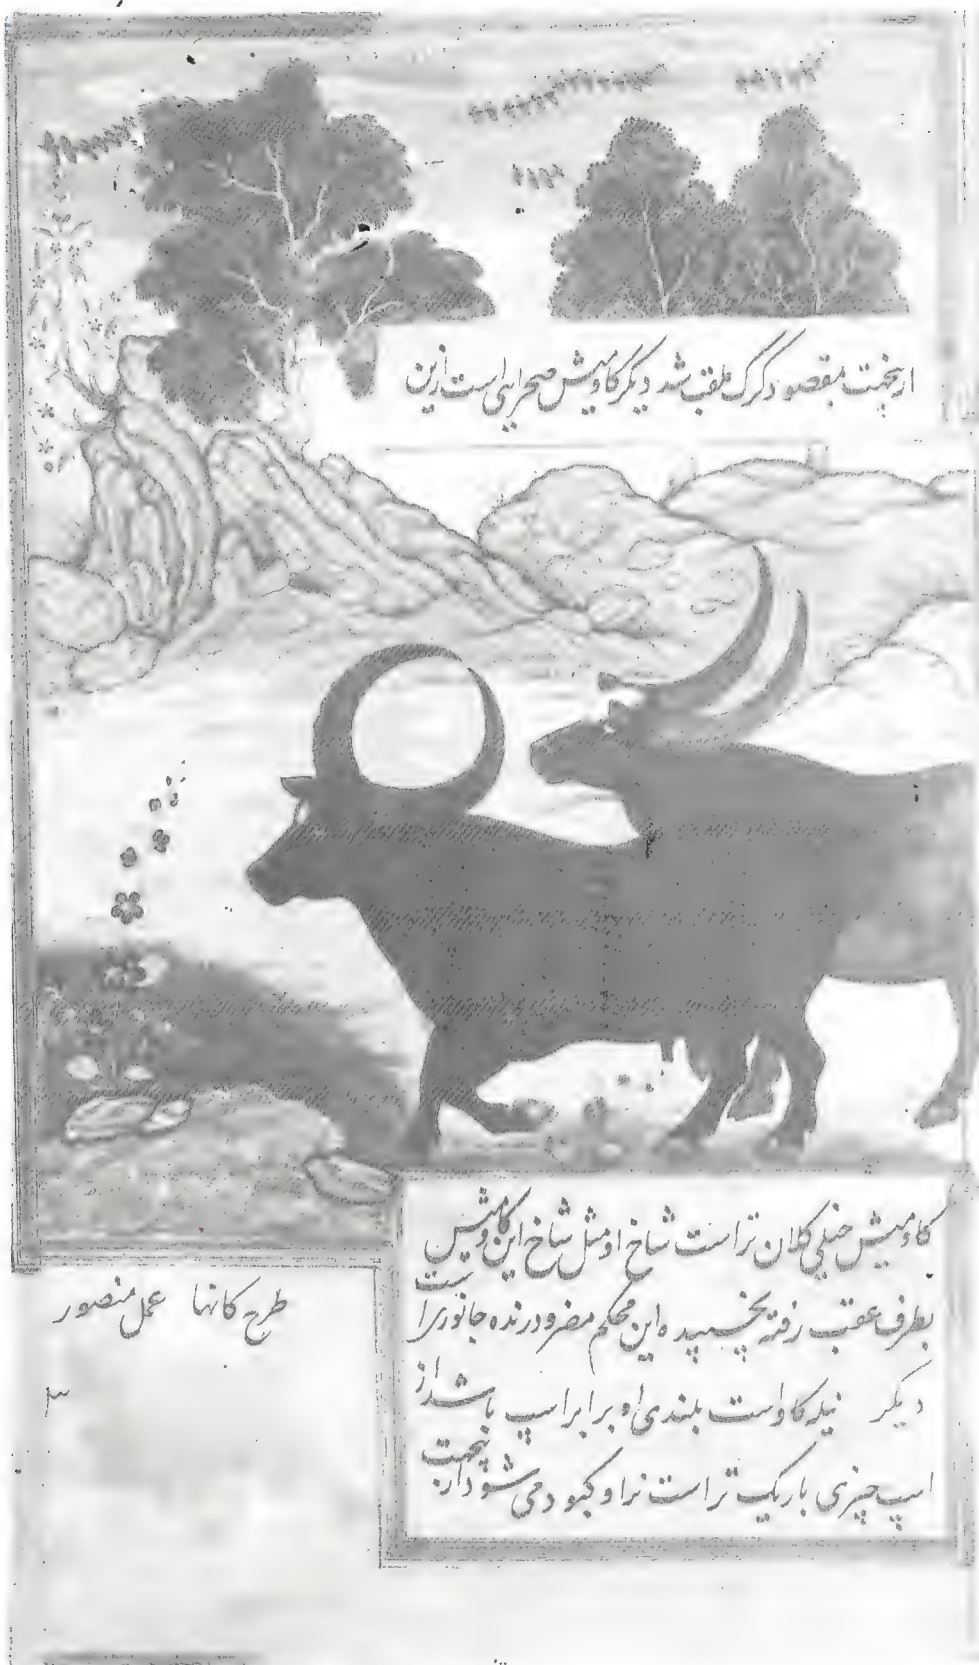 ازیجهت بمقصود کرگ ملقب شد دیگر کاومیش صحرایی است ازین
کاومیش خیلی کلان تر است شاخ او مثل شاخ این کاومیش
بطرف عقب رفته بچسپیده این محکم مضر و درنده جانوری است
دیگر نیله کاو است بلندی او برابر اسپ باشد از
اسپ چیزی باریک تر است نر او کبود می شود ازینجهت
طرح کانها عمل منصور
۳